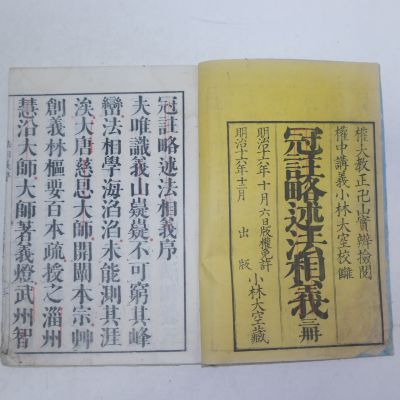 權大教正卍山實辦檢閱
權中講義小林大空校讎
冠註略述法相義 三冊
明治十六年十月六日版權免許
明治十六年十二月 出版 小林大空藏
冠註略述法相義序
夫唯識義山嶷嶷不可窮其峰
巒法相學海滔滔未能測其涯
涘大唐慈恩大師開闢本宗艸
創義林樞要百本疏授之淄州
慧沼大師大師著義燈武州智